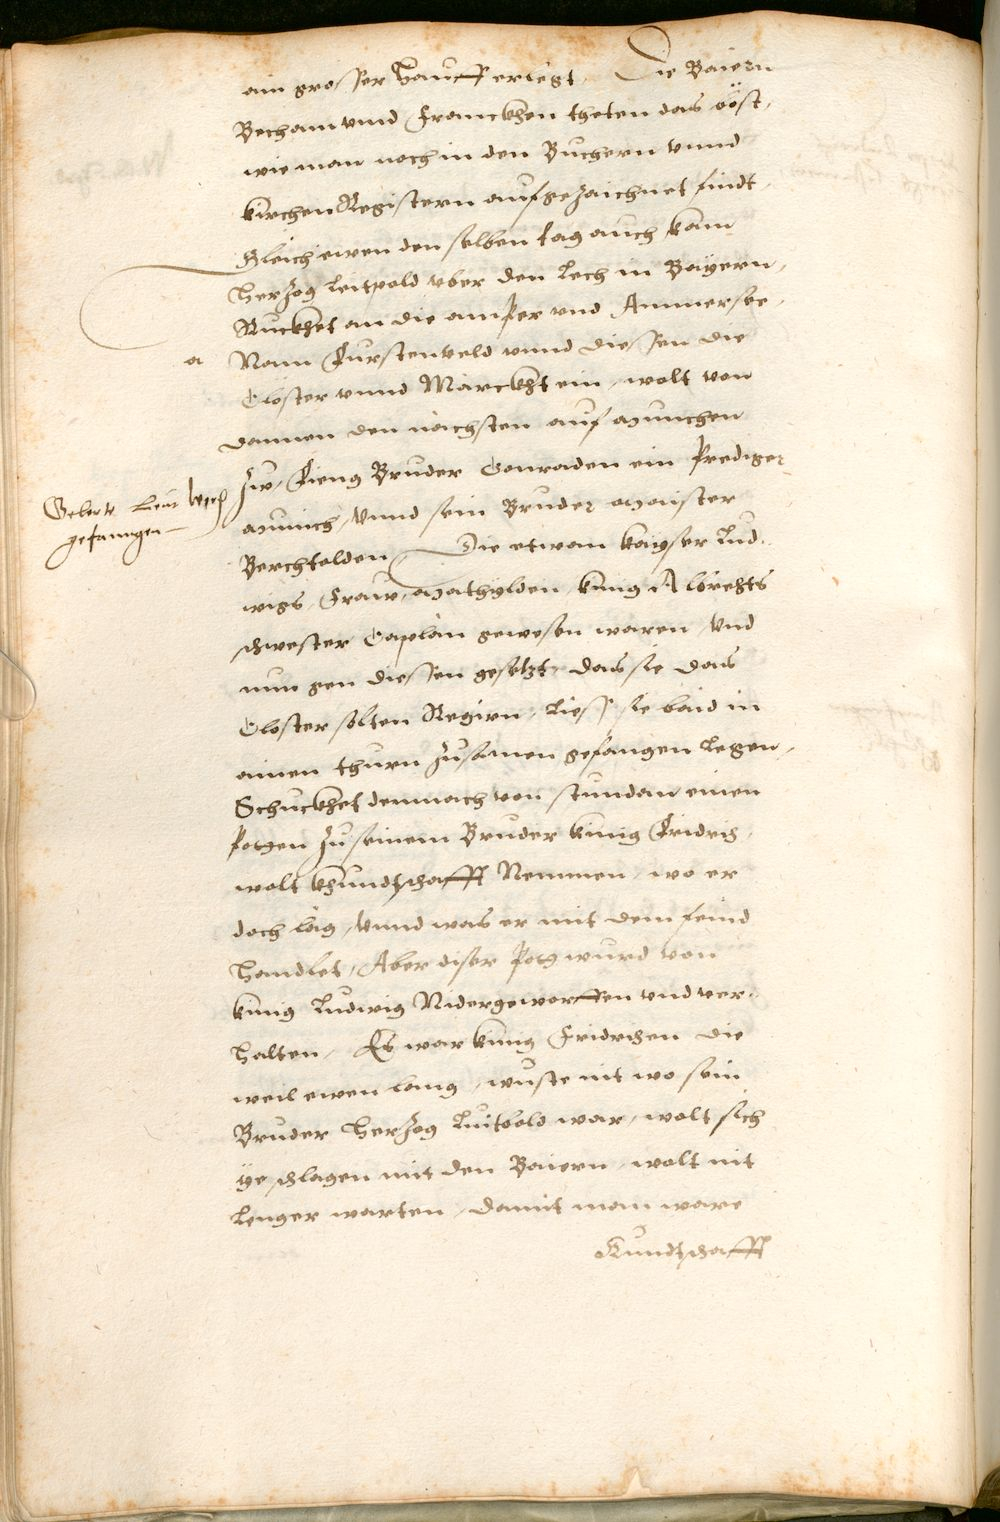 ain grosser Hauff erlegt. Die Baiern
Becham vnnd Franckhen theten das böst,
wie man noch in den Buchern vnnd
kirchen Registern aufgezaichnet findt.
Gleich ewen den selben tag auch kam
Herzog Leitpold vber den Lech in Bayern,
Ruckhet an die amper vnd Ammersee,
a Nam Furstenveld vnnd Diessen die
Closter vnnd Marckht ein, wolt von
dannen den nächsten auf munchen
zu, Fieng Bruder Conraden ein Prediger
Gelerte Leut werden
gefanngen
munich, Vnnd sein Bruder maister
Berchtolden, Die etwan kayser Lud-
wigs, Fraw, mathylden, kunig Albrechts
schwester Caplän gewesen waren, Vnd
nun gen Diessen gesetzt, das sie das
Closter solten Regirn, Liess sie baid in
ainen thurn zusamen gefangen Legen,
Schuckhet dennnach von stundan einen
Poten zu seinem Bruder kunig Fridrich,
wolt khundtschafft Nemmen, wo er
doch läg, Vnnd was er mit dem feind
handlet, Aber diser Pot wurd von
kunig Ludwig Nidergeworffen vnd ver-
halten, Es war kunig Fridrichen die
weil ewen lang, wuste nit wo sein
Bruder Herzog Luitbold war, wolt sich
ye schlagen mit den Baiern, wolt nit
Lenger warten, damit man ware
Kundtschafft